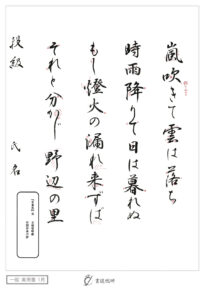 嵐吹きて雲は落ち
時雨降りて日は暮れぬ
もし燈火の漏れ来ずば
それと分かじ野辺の里
段級
氏名